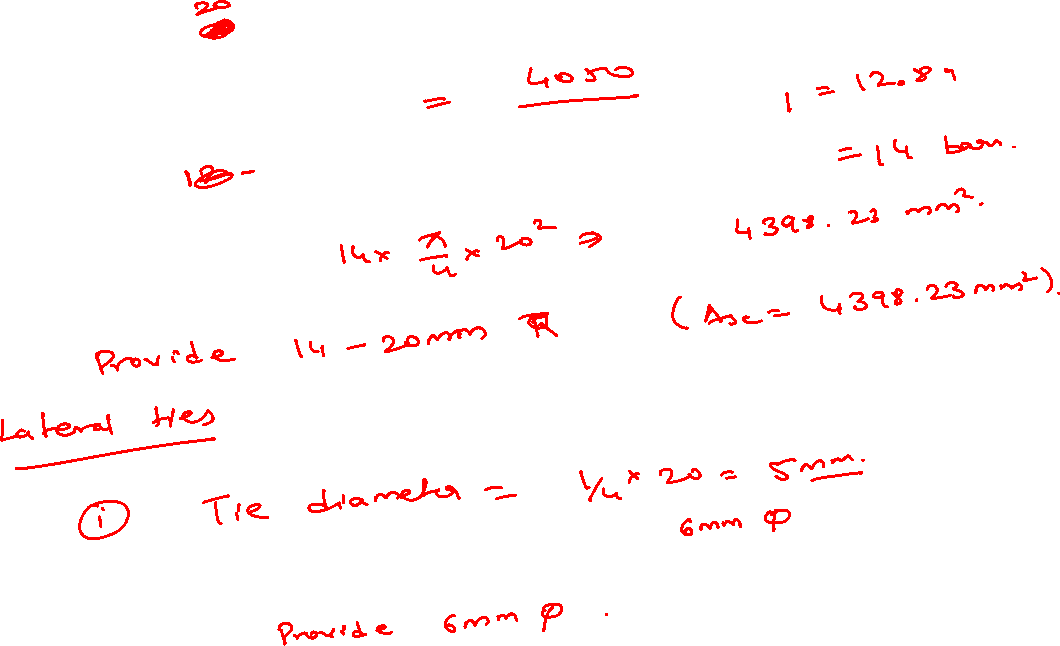 20
= 4050
1 = 12.89
= 14 bars.
14 x π/4 x 20² ⇒ 4398.23 mm².
Provide 14 - 20mm (Asc = 4398.23 mm²).
Lateral ties
(i) Tie diameter = 1/4 x 20 = 5mm.
6mm φ
Provide 6mm φ .